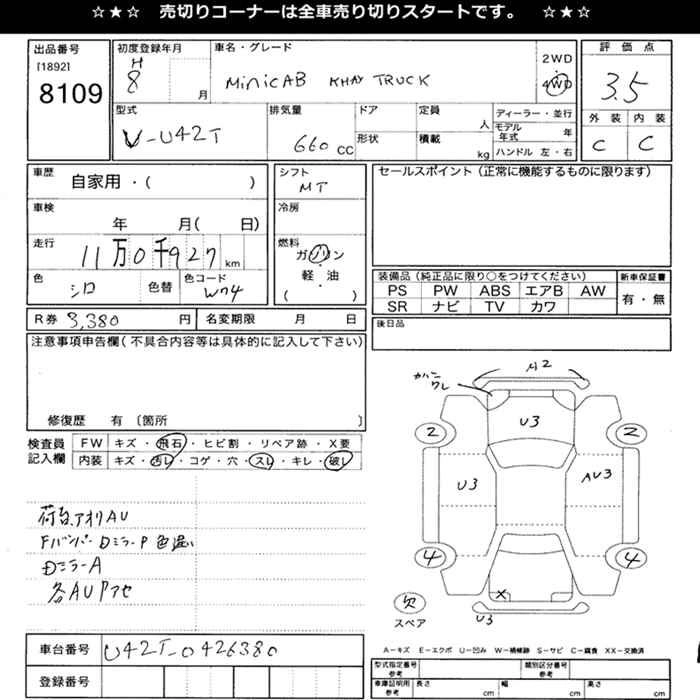 ☆★☆ 売切りコーナーは全車売り切りスタートです。 ☆★☆
出品番号 初度登録年月 車名・グレード 2WD 評価点
[1892] H
8109 8 月 MINICAB KHAY TRUCK 4WD 3.5
型式 排気量 ドア 定員 人 ディーラー・並行 外装 内装
V-U42T 660 CC 形状 積載 kg モデル年式 年 C C
ハンドル 左・右
車歴 自家用・( ) シフト MT セールスポイント(正常に機能するものに限ります)
車検 年 月( 日) 冷房
走行 11万0千927 km 燃料 ガソリン・軽油 ( )
色 シロ 色替 色コード W74
装備品(純正品に限り○をつけてください) 新車保証書
PS PW ABS エアB AW 有・無
SR ナビ TV カワ
R券 8,380 円 名変期限 月 日 後日品
注意事項申告欄(不具合内容等は具体的に記入して下さい)
修復歴 有 〔箇所 〕
検査員記入欄 FW キズ・飛石・ヒビ割・リペア跡・X要
内装 キズ・汚レ・コゲ・穴・スレ・キレ・破レ
荷台,アオリAU
FバンパーDミラーP色違い
Dミラー A
各AUアセ
A2
カバーワレ
U3
2 2
U3 AU3
4 4
X
欠
スペア U3
A-キズ E-エクボ U-凹み W-補修跡 S-サビ C-腐食 XX-交換済
車台番号 U42T-0426380
登録番号
型式指定番号 参考 類別区分番号 参考
車庫証明用 参考 長さ cm 幅 cm 高さ cm